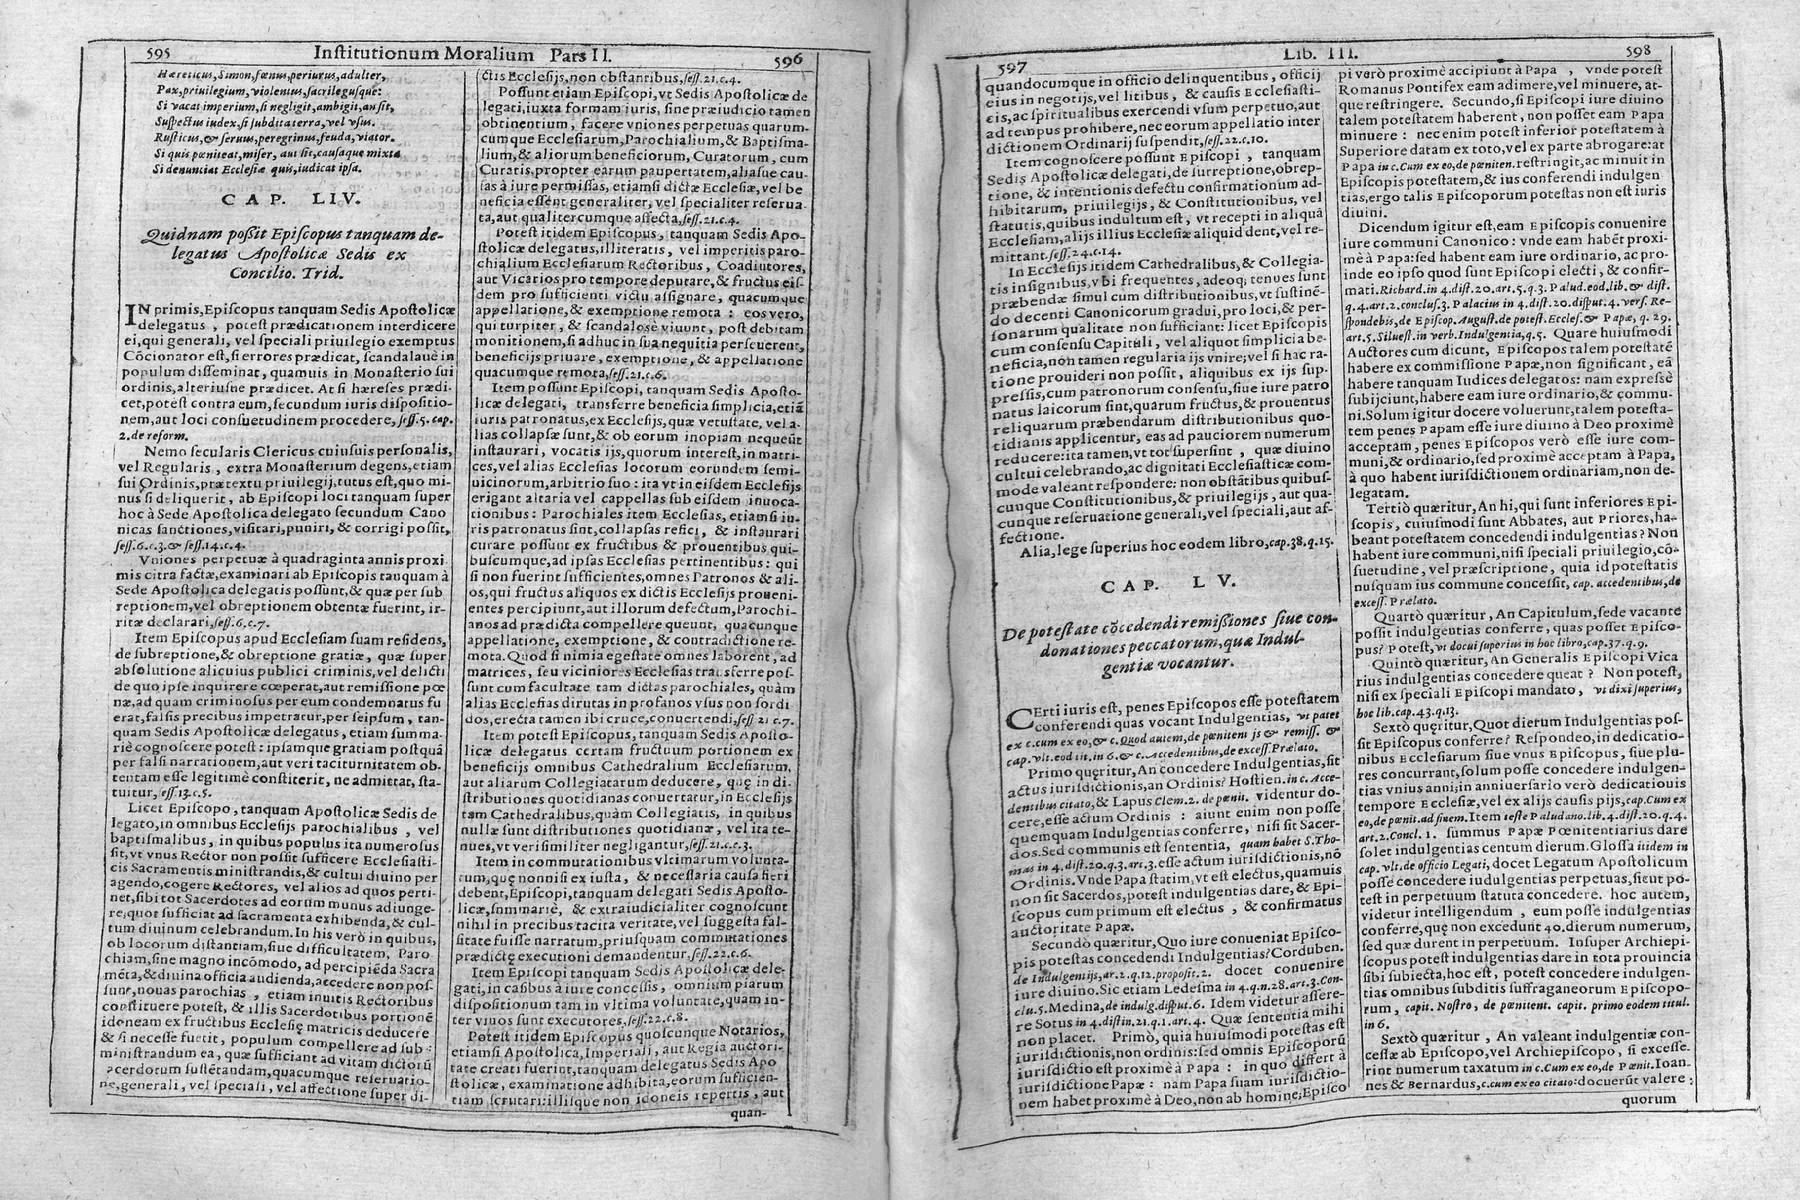 595 Institutionum Moralium Pars II. 596
Hæreticus, Simon, fœnus, periurus, adulter,
Pax, priuilegium, violentus, sacrilegusque:
Si vacat imperium, si negligit, ambigit, an sit,
Suspectus iudex, si subdita terra, vel vsus.
Rusticus, & seruus, peregrinus, feuda, viator.
Si quis pœniteat, miser, aut sit, causaque mixta
Si denunciat Ecclesiæ quis, iudicat ipsa.
CAP. LIV.
Quidnam possit Episcopus tanquam de-
legatus Apostolicæ Sedis ex
Concilio. Trid.
IN primis, Episcopus tanquam Sedis Apostolicæ
delegatus, potest prædicationem interdicere
ei, qui generali, vel speciali priuilegio exemptus
Cōcionator est, si errores prædicat, scandalaue in
populum disseminat, quamuis in Monasterio sui
ordinis, alteriusue prædicet. At si hæreses prædi-
cet, potest contra eum, secundum iuris dispositio-
nem, aut loci consuetudinem procedere, sess. 5. cap.
2. de reform.
Nemo secularis Clericus cuiusuis personalis,
vel Regularis, extra Monasterium degens, etiam
sui Ordinis, prætextu priuilegij, tutus est, quo mi-
nus si deliquerit, ab Episcopi loci tanquam super
hoc à Sede Apostolica delegato secundum Cano
nicas sanctiones, visitari, puniri, & corrigi possit,
sess. 6. c. 3. & sess. 14. c. 4.
Vniones perpetuæ à quadraginta annis proxi
mis citra factæ, examinari ab Episcopis tanquam à
Sede Apostolica delegatis possunt, & quæ per sub
reptionem, vel obreptionem obtentæ fuerint, ir-
ritæ declarari, sess. 6. c. 7.
Item Episcopus apud Ecclesiam suam residens,
de subreptione, & obreptione gratiæ, quæ super
absolutione alicuius publici criminis, vel delicti
de quo ipse inquirere cœperat, aut remissione pœ
næ, ad quam criminosus per eum condemnatus fu
erat, falsis precibus impetratur, per seipsum, tan-
quam Sedis Apostolicæ delegatus, etiam summa-
riè cognoscere potest: ipsamque gratiam postquā
per falsi narrationem, aut veri taciturnitatem ob
tentam esse legitimè constiterit, ne admittat, sta-
tuitur, sess. 13. c. 5.
Licet Episcopo, tanquam Apostolicæ Sedis de
legato, in omnibus Ecclesijs parochialibus, vel
baptismalibus, in quibus populus ita numerosus
sit, vt vnus Rector non possit sufficere Ecclesiasti-
cis Sacramentis ministrandis, & cultui diuino per
agendo, cogere Rectores, vel alios ad quos perti-
net, sibi tot Sacerdotes ad eorum munus adiunge-
re, quot sufficiat ad sacramenta exhibenda, & cul-
tum diuinum celebrandum. In his verò in quibus,
ob locorum distantiam, siue difficultatem, Paro
chiam, sine magno incōmodo, ad percipiēda Sacra
mēta, & diuina officia audienda, accedere non pos-
sunt, nouas parochias, etiam inuitis Rectoribus
constituere potest, & illis Sacerdotibus portionē
idoneam ex fructibus Ecclesię matricis deducere
& si necesse fuerit, populum compellere ad sub-
ministrandum ea, quæ sufficiant ad vitam dictorū
acerdotum sustētandam, quacumque reseruatio-
ne, generali, vel speciali, vel affectione super di-
ctis Ecclesijs, non obstantibus, sess. 21. c. 4.
Possunt etiam Episcopi, vt Sedis Apostolicæ de
legati, iuxta formam iuris, sine præiudicio tamen
obtinentium, facere vniones perpetuas quarum-
cumque Ecclesiarum, Parochialium, & Baptisma-
lium, & aliorum beneficiorum, Curatorum, cum
Curatis, propter earum paupertatem, aliasue cau-
sas à iure permissas, etiamsi dictæ Ecclesiæ, vel be
neficia essent generaliter, vel specialiter reserua-
ta, aut qualitercumque affecta, sess. 21. c. 4.
Potest itidem Episcopus, tanquam Sedis Apo-
stolicæ delegatus, illiteratis, vel imperitis paro-
chialium Ecclesiarum Rectoribus, Coadiutores,
aut Vicarios pro tempore deputare, & fructus eis-
dem pro sufficienti victu assignare, quacumque
appellatione, & exemptione remota: eos vero,
qui turpiter, & scandalosè viuunt, post debitam
monitionem, si adhuc in sua nequitia perseuerent,
beneficijs priuare, exemptione, & appellatione
quacumque remota, sess. 21. c. 6.
Item possunt Episcopi, tanquam Sedis Aposto-
licæ delegati, transferre beneficia simplicia, etiā
iuris patronatus, ex Ecclesijs, quæ vetustate, vel a-
lias collapsæ sunt, & ob eorum inopiam nequeūt
instaurari, vocatis ijs, quorum interest, in matri-
ces, vel alias Ecclesias locorum eorundem semi-
uicinorum, arbitrio suo: ita vt in eisdem Ecclesijs
erigant altaria vel cappellas sub eisdem inuoca-
tionibus: Parochiales item Ecclesias, etiamsi iu-
ris patronatus sint, collapsas refici, & instaurari
curare possunt ex fructibus & prouentibus qui-
buscumque, ad ipsas Ecclesias pertinentibus: qui
si non fuerint sufficientes, omnes Patronos & ali-
os, qui fructus aliquos ex dictis Ecclesijs proueni-
entes percipiunt, aut illorum defectum, Parochi-
anos ad prædicta compellere queunt, quacunque
appellatione, exemptione, & contradictione re-
mota. Quod si nimia egestate omnes laborent, ad
matrices, seu viciniores Ecclesias transferre pos-
sunt cum facultate tam dictas parochiales, quàm
alias Ecclesias dirutas in profanos vsus non sordi
dos, erecta tamen ibi cruce, conuertendi, sess. 21 c. 7.
Item potest Episcopus, tanquam Sedis Aposto-
licæ delegatus certam fructuum portionem ex
beneficijs omnibus Cathedralium Ecclesiarum,
aut aliarum Collegiatarum deducere, quę in di-
stributiones quotidianas conuertatur, in Ecclesijs
tam Cathedralibus, quàm Collegiatis, in quibus
nullæ sunt distributiones quotidianæ, vel ita te-
nues, vt verisimiliter negligantur, sess. 21. c. 3.
Item in commutationibus vltimarum volunta-
tum, quę nonnisi ex iusta, & necessaria causa fieri
debent, Episcopi, tanquam delegati Sedis Aposto-
licæ, summariè, & extraiudicialiter cognoscunt
nihil in precibus tacita veritate, vel suggesta fal-
sitate fuisse narratum, priusquam commutationes
prædictę executioni demandentur, sess. 22. c. 6.
Item Episcopi tanquam Sedis Apostolicæ dele-
gati, in casibus à iure concessis, omnium piarum
dispositionum tam in vltima voluntate, quam in-
ter viuos sunt executores, sess. 22. c. 8.
Potest itidem Episcopus quoscunque Notarios,
etiamsi Apostolica, Imperiali, aut Regia auctori-
tate creati fuerint, tanquam delegatus Sedis Apo
stolicæ, examinatione adhibita, eorum sufficien-
tiam scrutari: illisque non idoneis repertis, aut
quan-
597 Lib. III. 598
quandocumque in officio delinquentibus, officij
eius in negotijs, vel litibus, & causis Ecclesiasti-
cis, ac spiritualibus exercendi vsum perpetuo, aut
ad tempus prohibere, nec eorum appellatio inter
dictionem Ordinarij suspendit, sess. 22. c. 10.
Item cognoscere possunt Episcopi, tanquam
Sedis Apostolicæ delegati, de surreptione, obrep-
tione, & intentionis defectu confirmationum ad-
hibitarum, priuilegijs, & Constitutionibus, vel
statutis, quibus indultum est, vt recepti in aliquā
Ecclesiam, alijs illius Ecclesiæ aliquid dent, vel re-
mittant. sess. 24. c. 14.
In Ecclesijs itidem Cathedralibus, & Collegia-
tis insignibus, vbi frequentes, adeoq; tenues sunt
præbendæ simul cum distributionibus, vt sustinē-
do decenti Canonicorum gradui, pro loci, & per-
sonarum qualitate non sufficiant: licet Episcopis
cum consensu Capituli, vel aliquot simplicia be-
neficia, nō tamen regularia ijs vnire; vel si hac ra-
tione prouideri non possit, aliquibus ex ijs sup-
pressis, cum patronorum consensu, siue iure patro
natus laicorum sint, quarum fructus, & prouentus
reliquarum præbendarum distributionibus quo-
tidianis applicentur, eas ad pauciorem numerum
reducere: ita tamen, vt tot supersint, quæ diuino
cultui celebrando, ac dignitati Ecclesiasticæ com-
mode valeant respondere: non obstātibus quibus-
cunque Constitutionibus, & priuilegijs, aut qua-
cunque reseruatione generali, vel speciali, aut af-
fectione.
Alia, lege superius hoc eodem libro, cap. 38. q. 15.
CAP. LV.
De potestate cōcedendi remissiones siue con-
donationes peccatorum, quæ Indul-
gentiæ vocantur.
CErti iuris est, penes Episcopos esse potestatem
conferendi quas vocant Indulgentias, vt patet
ex c. cum ex eo, & c. Quod autem, de pœnitenijs & remiss. &
cap. vlt. eod tit. in 6. & c. Accedentibus, de excess. Prælato.
Primo quęritur, An concedere Indulgentias, sit
actus iurisdictionis, an Ordinis? Hostien. in c. Acce-
dentibus citato, & Lapus Clem. 2. de pœnit. videntur do-
cere, esse actum Ordinis: aiunt enim non posse
quemquam Indulgentias conferre, nisi sit Sacer-
dos. Sed communis est sententia, quam habet S. Tho-
mas in 4. dist. 20. q. 3. art. 3. esse actum iurisdictionis, nō
Ordinis. Vnde Papa statim, vt est electus, quamuis
non sit Sacerdos, potest indulgentias dare, & Epi-
scopus cum primum est electus, & confirmatus
auctoritate Papæ.
Secundò quæritur, Quo iure conueniat Episco-
pis potestas concedendi Indulgentias? Corduben.
de Indulgentijs, ar. 2. q. 12. proposit. 2. docet conuenire
iure diuino. Sic etiam Ledesma in 4. q. n. 28. art. 3. Con-
clu. 5. Medina, de indulg. disput. 6. Idem videtur assere-
re Sotus in 4. distin. 21. q. 1. art. 4. Quæ sententia mihi
non placet. Primò, quia huiusmodi potestas est
iurisdictionis, non ordinis: sed omnis Episcoporū
iurisdictio est proximè à Papa: in quo differt à
iurisdictione Papæ: nam Papa suam iurisdictio-
nem habet proximè à Deo, non ab homine; Episco
pi verò proximè accipiunt à Papa, vnde potest
Romanus Pontifex eam adimere, vel minuere, at-
que restringere. Secundo, si Episcopi iure diuino
talem potestatem haberent, non posset eam Papa
minuere: nec enim potest inferior potestatem à
Superiore datam ex toto, vel ex parte abrogare: at
Papa in c. Cum ex eo, de pœniten. restringit, ac minuit in
Episcopis potestatem, & ius conferendi indulgen
tias, ergo talis Episcoporum potestas non est iuris
diuini.
Dicendum igitur est, eam Episcopis conuenire
iure communi Canonico: vnde eam habēt proxi-
mè à Papa: sed habent eam iure ordinario, ac pro-
inde eo ipso quod sunt Episcopi electi, & confir-
mati. Richard. in 4. dist. 20. art. 5. q. 3. Palud. eod. lib. & dist.
q. 4. art. 2. conclus. 3. Palacius in 4. dist. 20. disput. 4. vers. Re-
spondebis, de Episcop. August. de potest. Eccles. & Papæ, q. 29.
art. 5. Siluest. in verb. Indulgentia, q. 5. Quare huiusmodi
Auctores cum dicunt, Episcopos talem potestatē
habere ex commissione Papæ, non significant, eā
habere tanquam Iudices delegatos: nam expressè
subijciunt, habere eam iure ordinario, & commu-
ni. Solum igitur docere voluerunt, talem potesta-
tem penes Papam esse iure diuino à Deo proximè
acceptam, penes Episcopos verò esse iure com-
muni, & ordinario, sed proximè acceptam à Papa,
à quo habent iurisdictionem ordinariam, non de-
legatam.
Tertiò quæritur, An hi, qui sunt inferiores Epi-
scopis, cuiusmodi sunt Abbates, aut Priores, ha-
beant potestatem concedendi indulgentias? Non
habent iure communi, nisi speciali priuilegio, cō-
suetudine, vel præscriptione, quia id potestatis
nusquam ius commune concessit, cap. accedentibus, de
excess. Prælato.
Quartò quæritur, An Capitulum, sede vacante
possit indulgentias conferre, quas posset Episco-
pus? Potest, vt docui superius in hoc libro, cap. 37. q. 9.
Quintò quæritur, An Generalis Episcopi Vica
rius indulgentias concedere queat? Non potest,
nisi ex speciali Episcopi mandato, vt dixi superius,
hoc lib. cap. 43. q. 13.
Sextò quęritur, Quot dierum Indulgentias pos-
sit Episcopus conferre? Respondeo, in dedicatio-
nibus Ecclesiarum siue vnus Episcopus, siue plu-
res concurrant, solum posse concedere indulgen-
tias vnius anni; in anniuersario verò dedicatiouis
tempore Ecclesiæ, vel ex alijs causis pijs, cap. Cum ex
eo, de pœnit. ad finem. Item teste Paludano. lib. 4. dist. 20. q. 4.
art. 2. Concl. 1. summus Papæ Pœnitentiarius dare
solet indulgentias centum dierum. Glossa itidem in
cap. vlt. de officio Legati, docet Legatum Apostolicum
posse concedere indulgentias perpetuas, sicut po-
test in perpetuum statuta concedere. hoc autem,
videtur intelligendum, eum posse indulgentias
conferre, quę non excedunt 40. dierum numerum,
sed quæ durent in perpetuum. Insuper Archiepi-
scopus potest indulgentias dare in tota prouincia
sibi subiecta, hoc est, potest concedere indulgen-
tias omnibus subditis suffraganeorum Episcopo-
rum, capit. Nostro, de pœnitent. capit. primo eodem titul.
in 6.
Sextò quæritur, An valeant indulgentiæ con-
cessæ ab Episcopo, vel Archiepiscopo, si excesse-
rint numerum taxatum in c. Cum ex eo, de Pœnit. Ioan-
nes & Bernardus, c. cum ex eo citato: docuerūt valere:
quorum